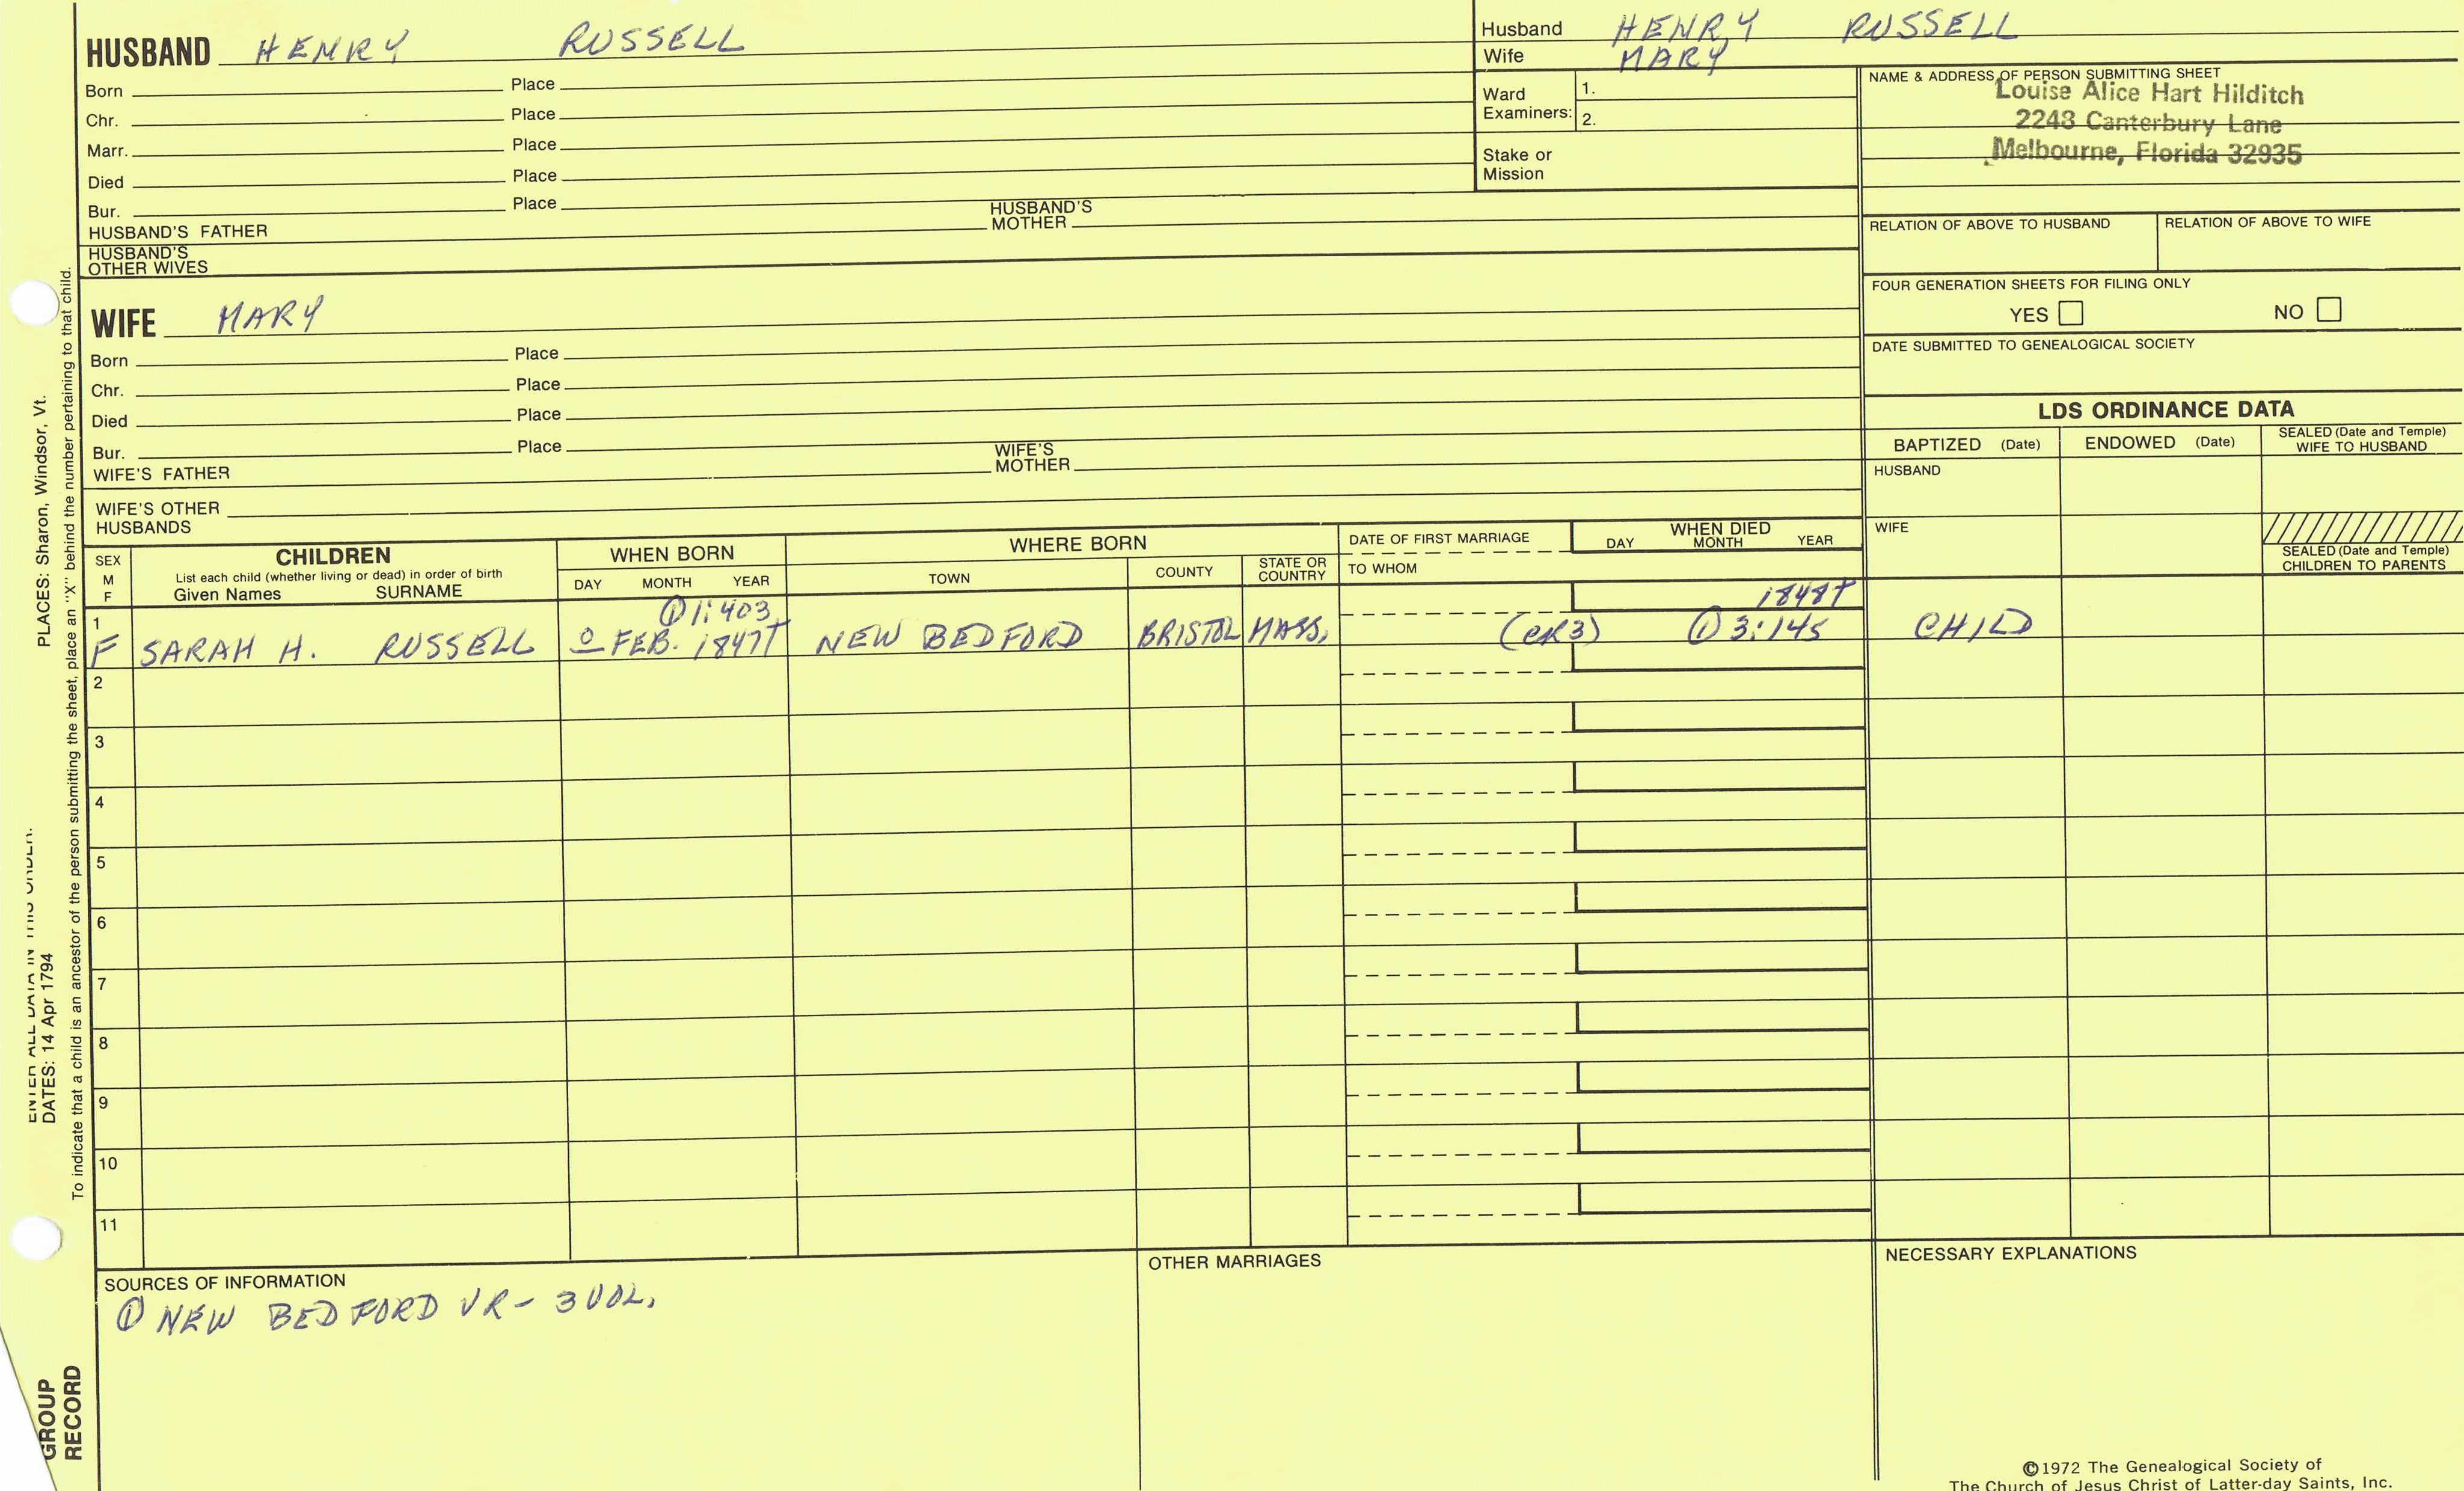 HUSBAND HENRY RUSSELL
Born Place
Chr. Place
Marr. Place
Died Place
Bur. Place
HUSBAND'S FATHER HUSBAND'S MOTHER
HUSBAND'S OTHER WIVES
WIFE MARY
Born Place
Chr. Place
Died Place
Bur. Place
WIFE'S FATHER WIFE'S MOTHER
WIFE'S OTHER HUSBANDS
Husband HENRY RUSSELL
Wife MARY
Ward Examiners: 1.
2.
Stake or Mission
NAME & ADDRESS OF PERSON SUBMITTING SHEET
Louise Alice Hart Hilditch
2243 Canterbury Lane
Melbourne, Florida 32935
RELATION OF ABOVE TO HUSBAND RELATION OF ABOVE TO WIFE
FOUR GENERATION SHEETS FOR FILING ONLY
YES NO
DATE SUBMITTED TO GENEALOGICAL SOCIETY
LDS ORDINANCE DATA
BAPTIZED (Date) ENDOWED (Date) SEALED (Date and Temple) WIFE TO HUSBAND
HUSBAND
WIFE
SEALED (Date and Temple) CHILDREN TO PARENTS
SEX M F
CHILDREN
List each child (whether living or dead) in order of birth
Given Names SURNAME
WHEN BORN
DAY MONTH YEAR
WHERE BORN
TOWN COUNTY STATE OR COUNTRY
DATE OF FIRST MARRIAGE
TO WHOM
WHEN DIED
DAY MONTH YEAR
1 ① 1:403 1848T
F SARAH H. RUSSELL O FEB. 1847T NEW BEDFORD BRISTOL MASS. (CR3) ① 3:145 CHILD
2
3
4
5
6
7
8
9
10
11
SOURCES OF INFORMATION
① NEW BEDFORD VR - 3 VOL.
OTHER MARRIAGES
NECESSARY EXPLANATIONS
©1972 The Genealogical Society of
The Church of Jesus Christ of Latter-day Saints, Inc.
ENTER ALL DATA IN THIS ORDER:
DATES: 14 Apr 1794 PLACES: Sharon, Windsor, Vt.
To indicate that a child is an ancestor of the person submitting the sheet, place an "X" behind the number pertaining to that child.
GROUP
RECORD